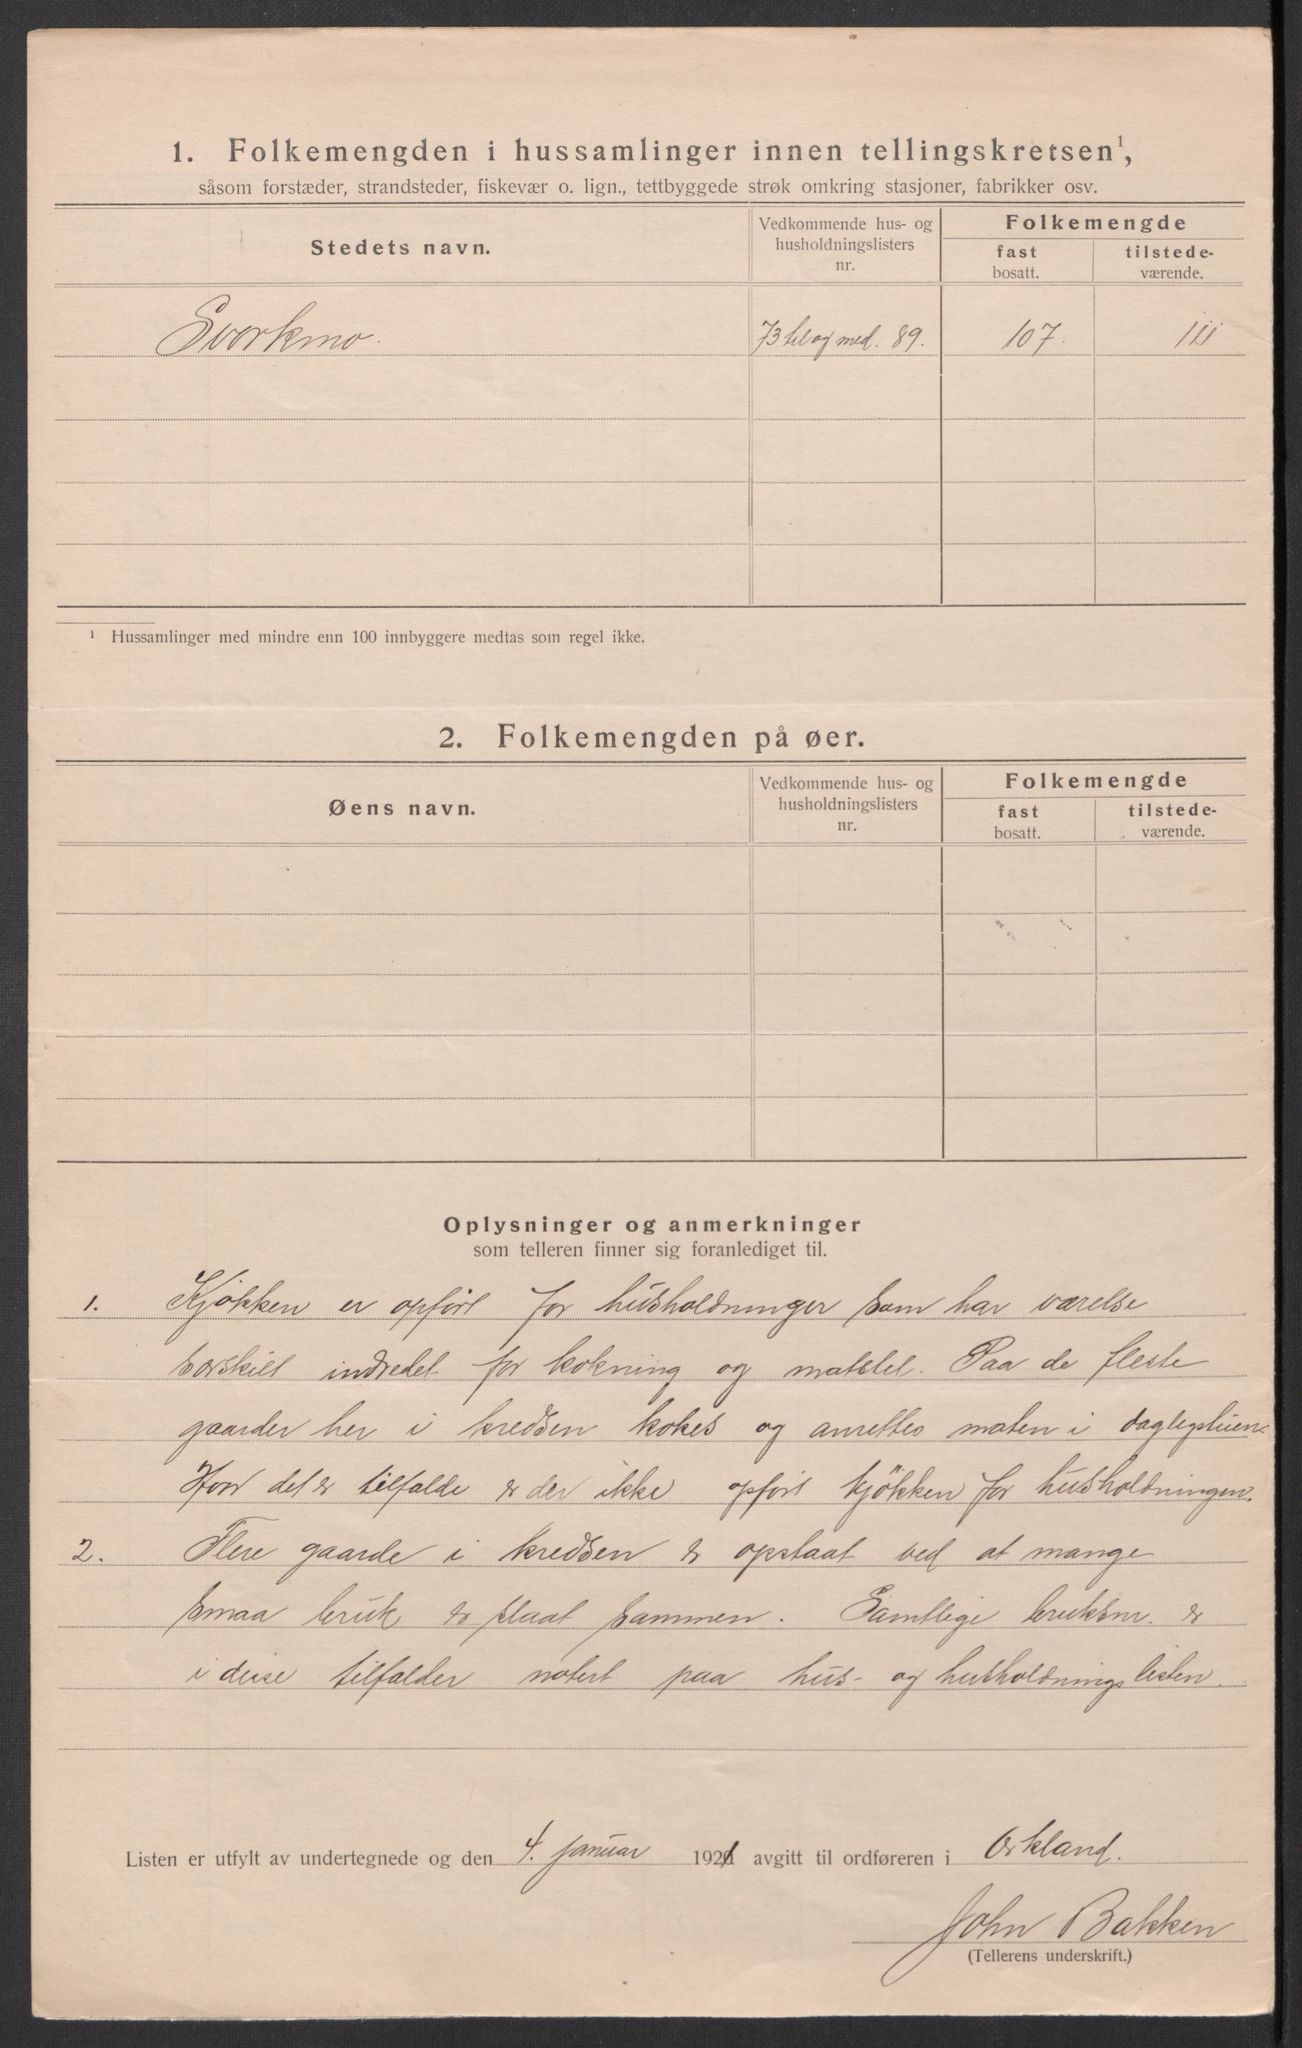 1. Folkemengden i hussamlinger innen tellingskretsen¹,
såsom forstæder, strandsteder, fiskevær o. lign., tettbyggede strøk omkring stasjoner, fabrikker osv.
Stedets navn.
Vedkommende hus- og husholdningslisters nr.
Folkemengde
fast bosatt.
tilstede-værende.
Svorkmo. 73 til og med. 89. 107. 111
¹ Hussamlinger med mindre enn 100 innbyggere medtas som regel ikke.
2. Folkemengden på øer.
Øens navn.
Vedkommende hus- og husholdningslisters nr.
Folkemengde
fast bosatt.
tilstede-værende.
Oplysninger og anmerkninger
som telleren finner sig foranlediget til.
1. Kjøkken er opført for husholdninger som har værelse
særskilt indredet for kokning og matstel. Paa de fleste
gaarder her i kredsen kokes og anrettes maten i daglegstuen.
Hvor det er tilfælde er der ikke opført kjøkken for husholdningen.
2. Flere gaarde i kredsen er opstaat ved at mange
smaa bruk er slaat sammen. Samtlige bruksnr. er
i disse tilfælder notert paa hus- og husholdningslisten.
Listen er utfylt av undertegnede og den 4. januar 1921 avgitt til ordføreren i Orkland.
John Bakken
(Tellerens underskrift.)